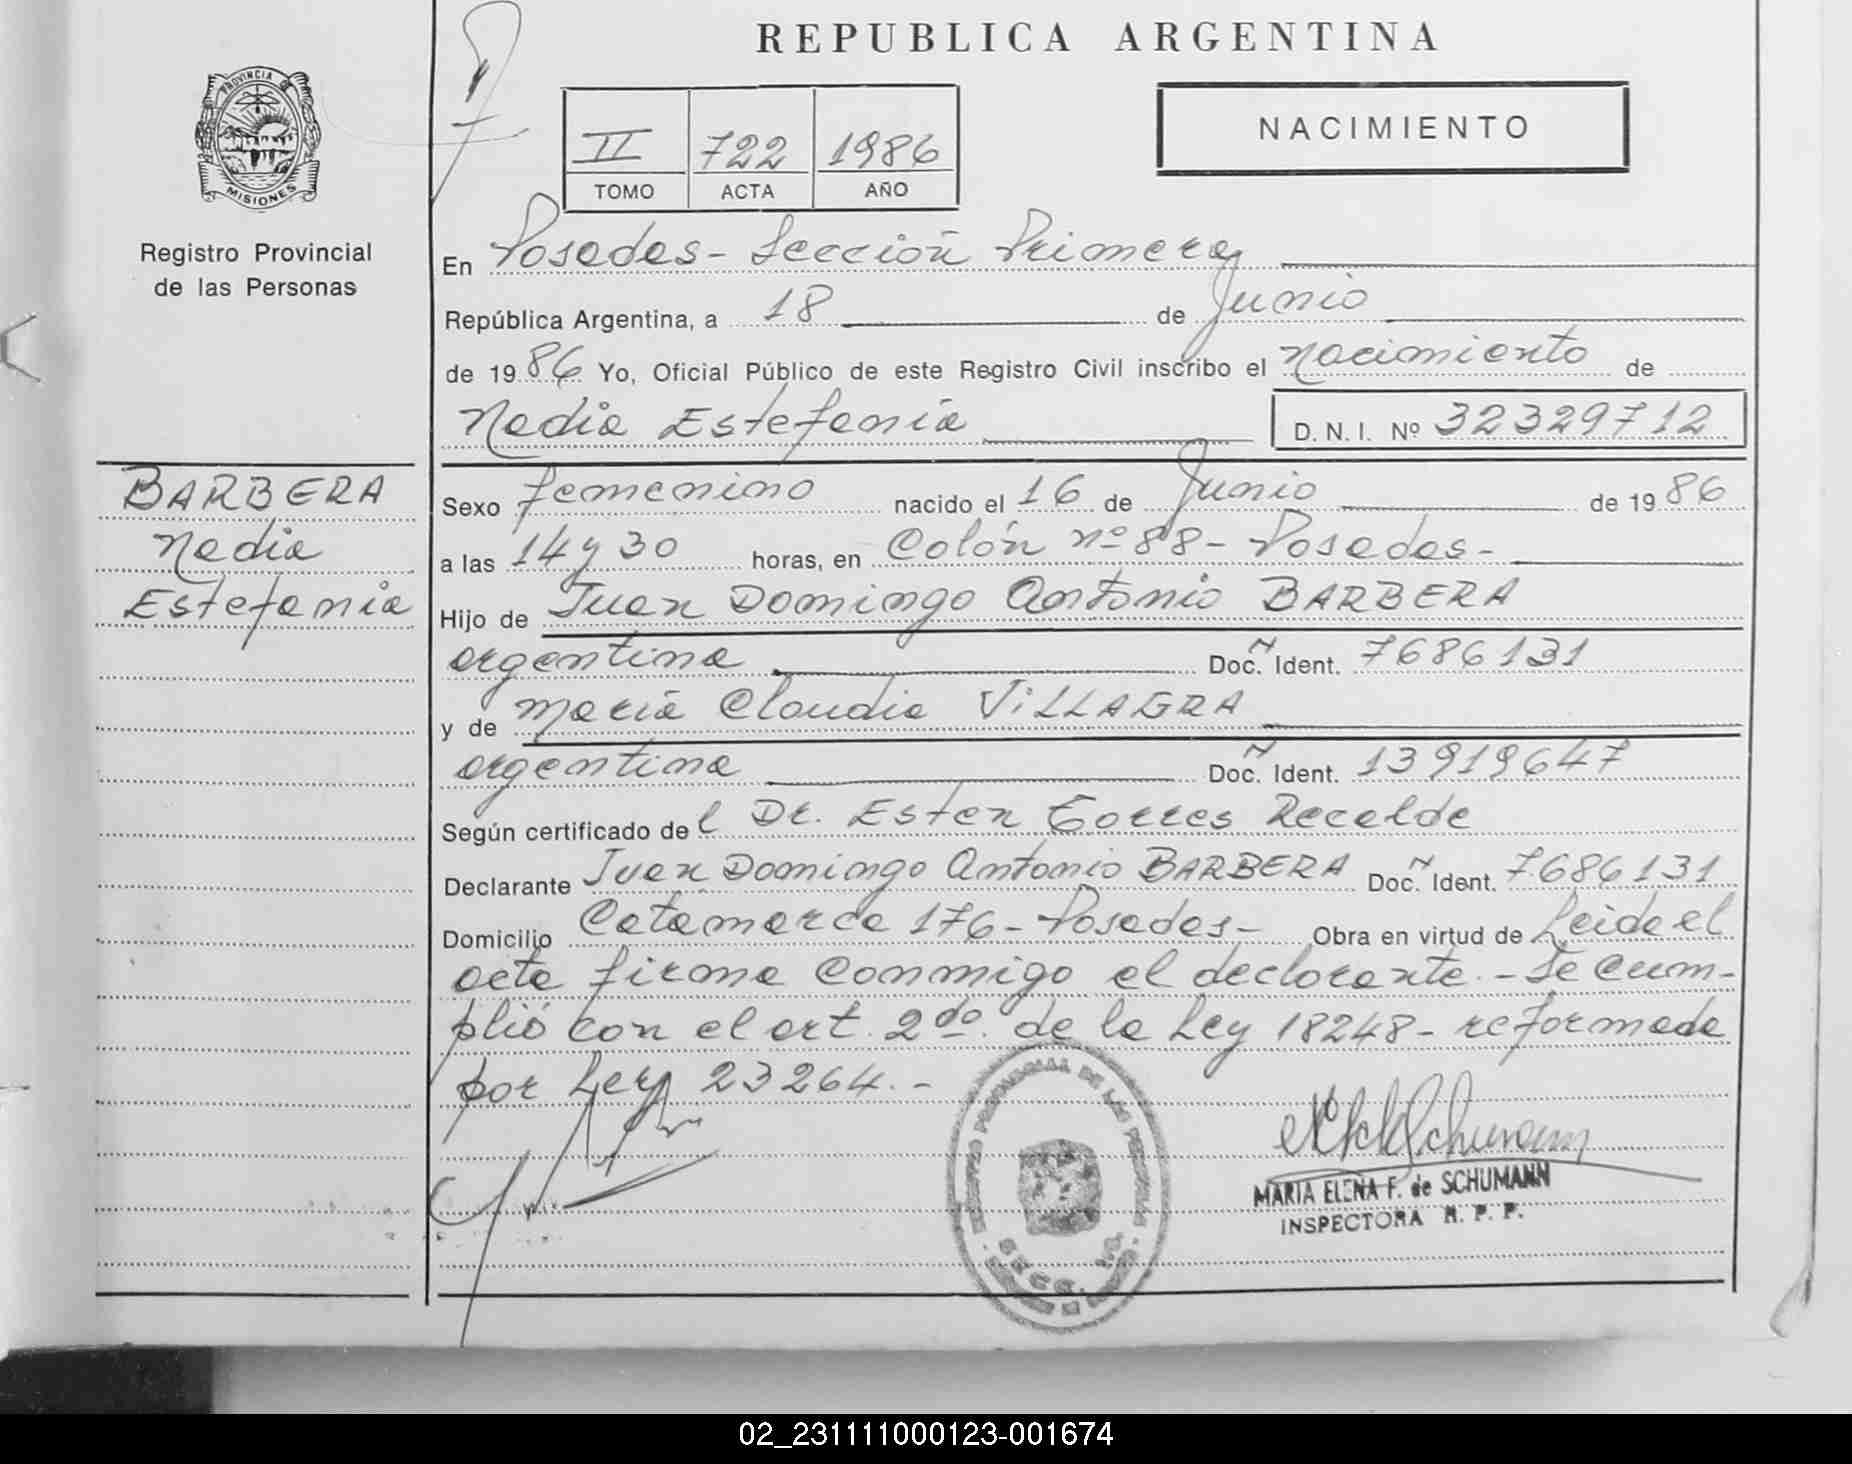 REPUBLICA ARGENTINA
PROVINCIA DE
MISIONES
Registro Provincial
de las Personas
II 722 1986
TOMO ACTA AÑO
NACIMIENTO
En Posadas - Sección Primera
República Argentina, a 18 de Junio
de 1986 Yo, Oficial Público de este Registro Civil inscribo el nacimiento de
Nadia Estefanía D. N. I. Nº 32329712
BARBERA
Nadia
Estefanía
Sexo femenino nacido el 16 de Junio de 1986
a las 14 y 30 horas, en Colón nº 88 - Posadas -
Hijo de Juan Domingo Antonio BARBERA
argentina Doc. Ident. 7686131
y de María Claudia VILLAGRA
argentina Doc. Ident. 13919647
Según certificado del Dr. Esten Torres Recalde
Declarante Juan Domingo Antonio BARBERA Doc. Ident. 7686131
Domicilio Catamarca 176 - Posadas - Obra en virtud de Leida el
acta firma conmigo el declarante. - Se cum-
plió con el art. 2do. de la Ley 18248 - reformada
por Ley 23264. -
REGISTRO PROVINCIAL DE LAS PERSONAS
SECC. 1a.
MARIA ELENA F. de SCHUMANN
INSPECTORA R. P. P.
02_231111000123-001674